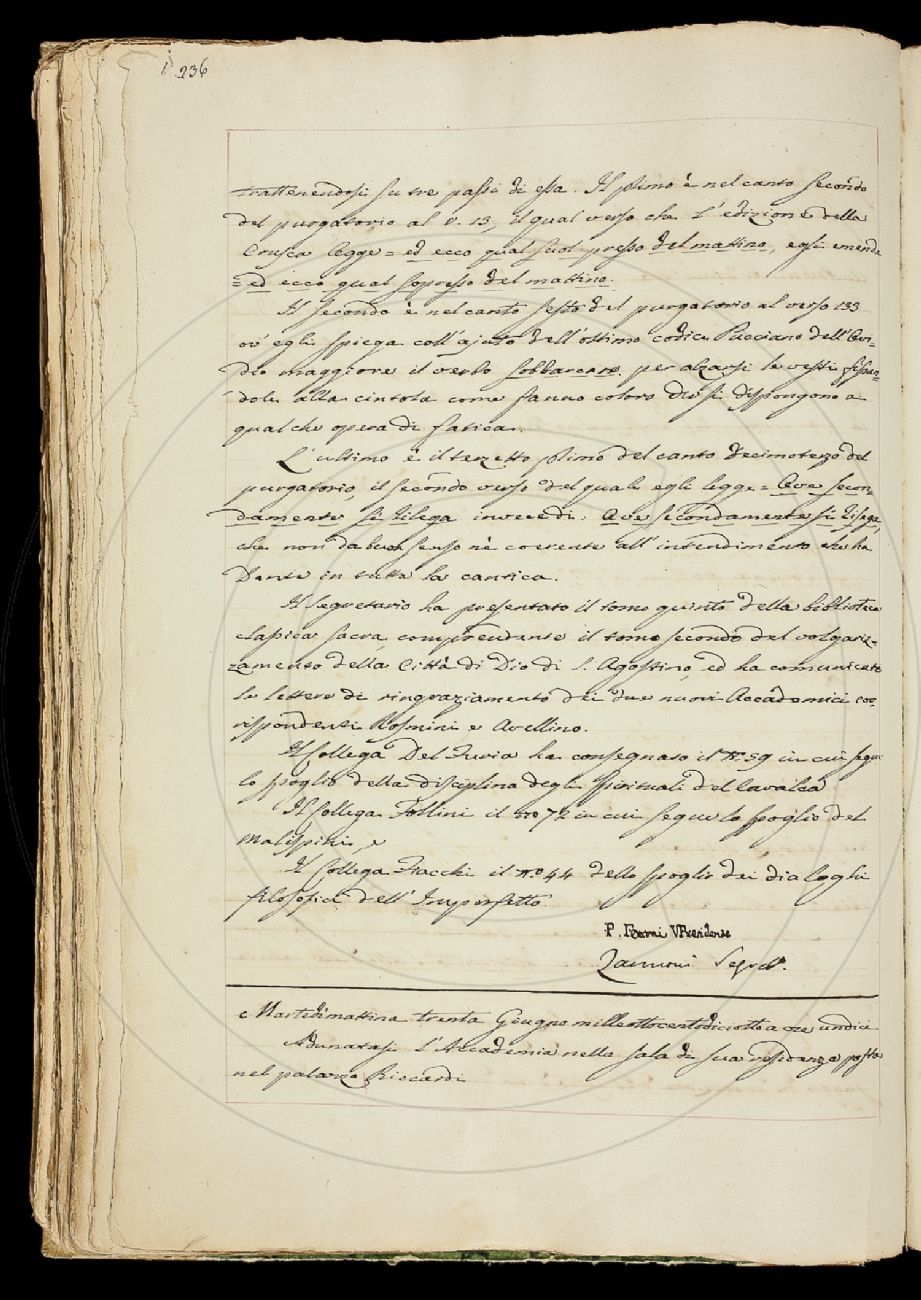 236
trattenendosi su tre passi di essa. Il primo è nel canto secondo
del purgatorio al v. 13, il qual verso che l'edizione della
Crusca legge = ed ecco qual suol presso del mattino, egli emenda
= ed ecco qual sopresso del mattino.
Il secondo è nel canto sesto del purgatorio al verso 133
ov' egli spiega coll'ajuto dell'ottimo codice Pucciano dell'Ovi-
dio maggiore il verbo sobbarcare per alzarsi le vesti fissan-
dole alla cintola come fanno coloro che si dispongono a
qualche opera di fatica.
L'ultimo è il terzetto primo del canto decimoterzo del
purgatorio, il secondo verso del quale egli legge = Ove secon-
damente si rilega invece di: Ove secondamente si risega,
che non dà buon senso nè coerente all'intendimento che ha
Dante in tutta la cantica.
Il Segretario ha presentato il tomo quinto della biblioteca
classica sacra, comprendente il tomo secondo del volgariz-
zamento della Città di Dio di S. Agostino, ed ha comunicate
le lettere di ringraziamento dei due nuovi Accademici cor-
rispondenti Rosmini e Avellino.
Il Collega Del Furia ha consegnato il n.o 59 in cui segue
lo spoglio della disciplina degli spirituali del Cavalca
Il Collega Follini il no 72 in cui segue lo spoglio del
Malispini, e
Il Collega Fiacchi il no 44 dello spoglio dei dialoghi
filosofici dell'Imperfetto.
P. Ferroni VPresidente
Zannoni Segret.o
Martedì mattina trenta Giugno milleottocentodiciotto a ore undici
Adunatasi l'Accademia nella sala di sua residenza posta
nel palazzo Riccardi